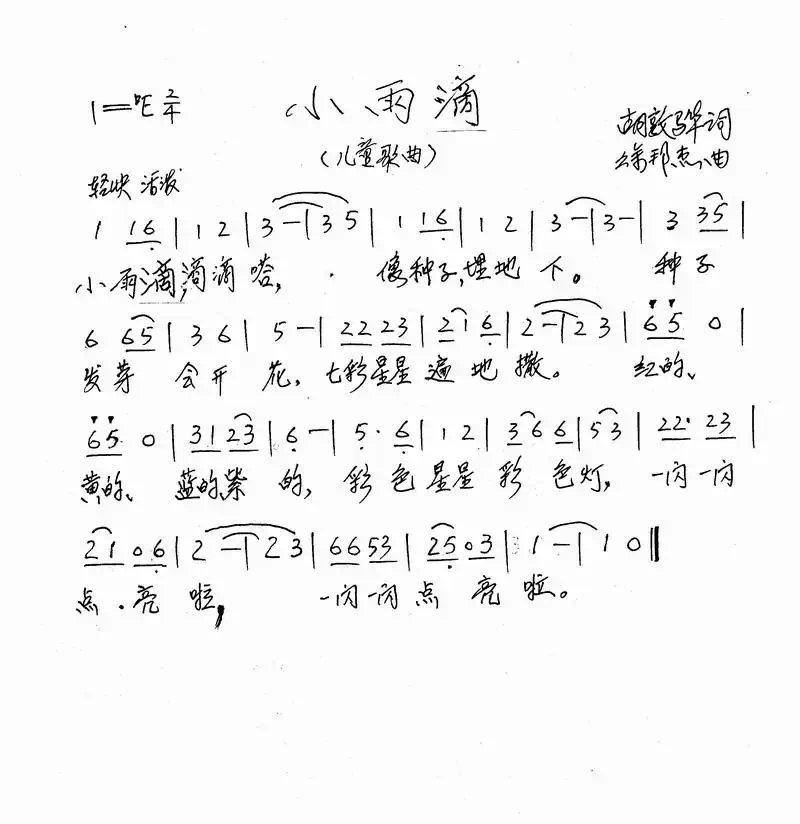 1=♭E 2/4 小雨滴
（儿童歌曲）
胡敦骅词
徐邦杰曲
轻快 活泼
1 16 | 1 2 | 3 — | 3 5 | 1 16 | 1 2 | 3 — | 3 — | 3 35 |
小雨滴,滴滴嗒, 像种子,埋地下。 种子
6 65 | 3 6 | 5 — | 22 23 | 21 6 | 2 — | 2 3 | 65 0 |
发芽 会开花, 七彩星星遍地撒。 红的、
65 0 | 31 23 | 6 — | 5· 6 | 1 2 | 36 6 | 53 | 22· 23 |
黄的、蓝的紫的, 彩色星星彩色灯, 一闪一闪
21 06 | 2 — | 2 3 | 66 53 | 25 03 | 1 — | 1 0 ‖
点·亮啦, 一闪一闪点亮啦。